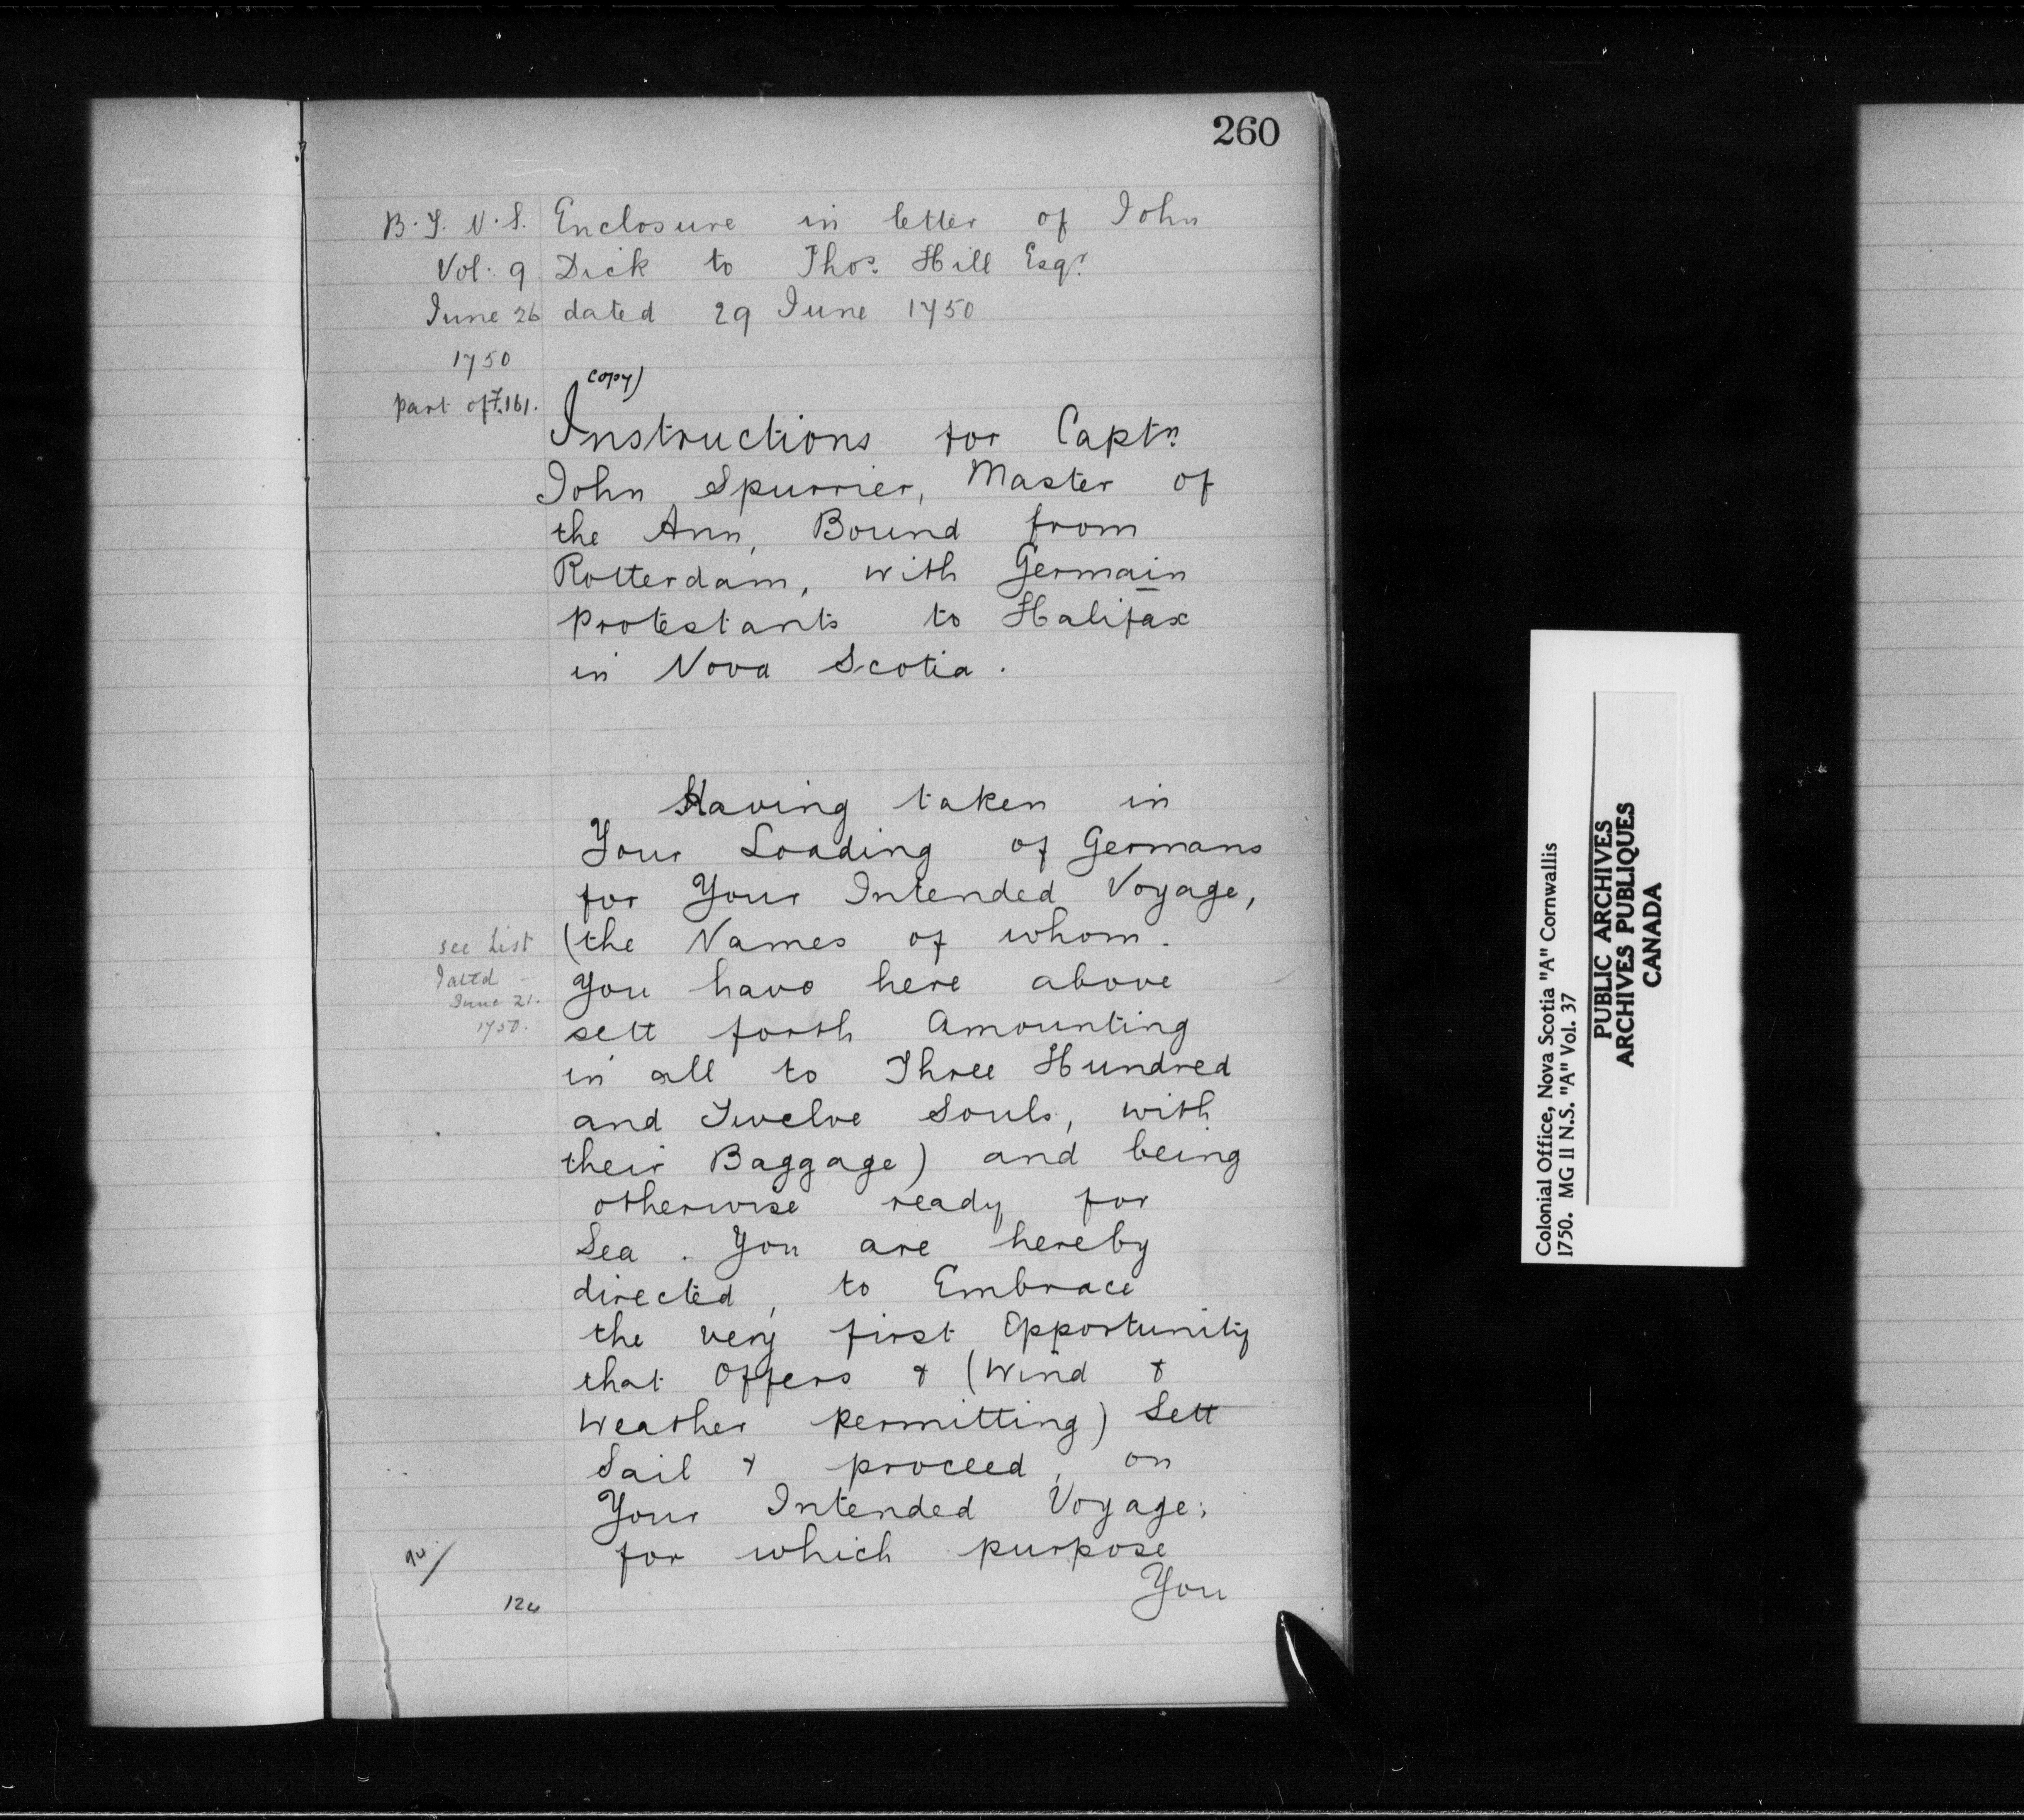 260
B. T. N. S.
Vol. 9
June 26
1750
part of F. 161.
Enclosure in letter of John
Dick to Thos. Hill Esqr.
dated 29 June 1750
copy)
Instructions for Captn.
John Spurrier, Master of
the Ann, Bound from
Rotterdam, with Germain
protestants to Halifax
in Nova Scotia.
Having taken in
Your Loading of Germans
for Your Intended Voyage,
(the Names of whom.
see List
dated
June 21.
1750.
You have here above
sett forth Amounting
in all to Three Hundred
and Twelve Souls, with
their Baggage) and being
otherwise ready for
Sea. You are hereby
directed, to Embrace
the very first Opportunity
that Offers & (Wind &
Weather permitting) Sett
Sail & proceed, on
Your Intended Voyage;
for which purpose
You
Colonial Office, Nova Scotia "A" Cornwallis
1750. MG II N.S. "A" Vol. 37
PUBLIC ARCHIVES
ARCHIVES PUBLIQUES
CANADA